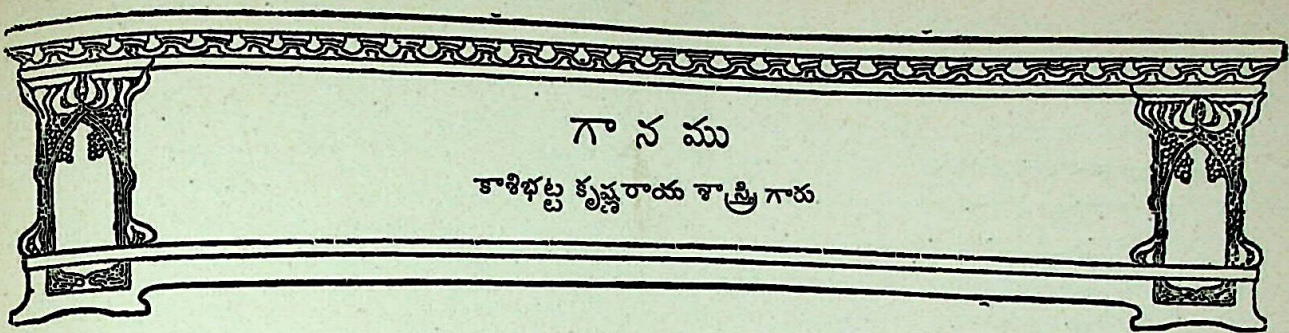 గా న ము
కాశిభట్ట కృష్ణరాయ శాస్త్రి గారు